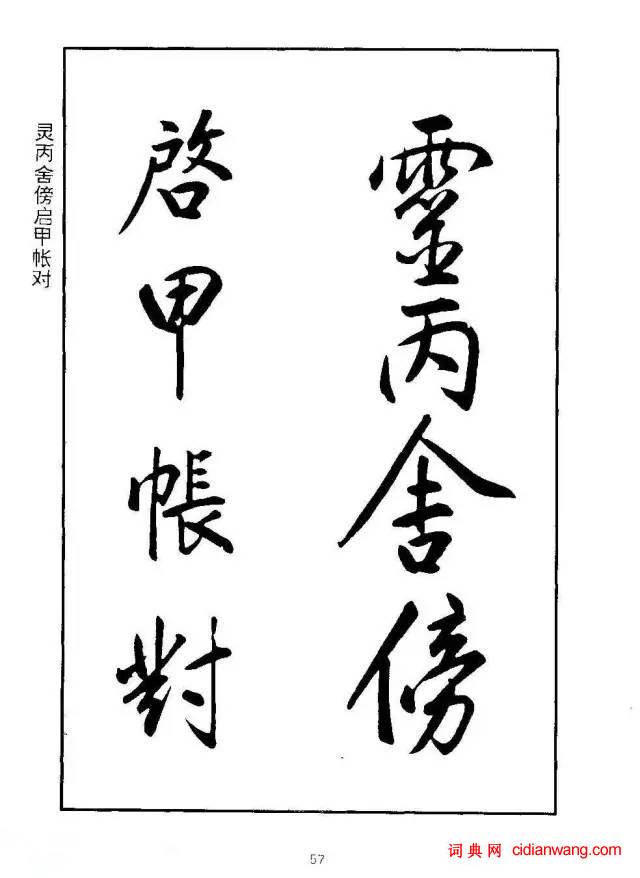 靈丙舍傍
啓甲帳對
灵丙舍傍启甲帐对
57
词典网 cidianwang.com